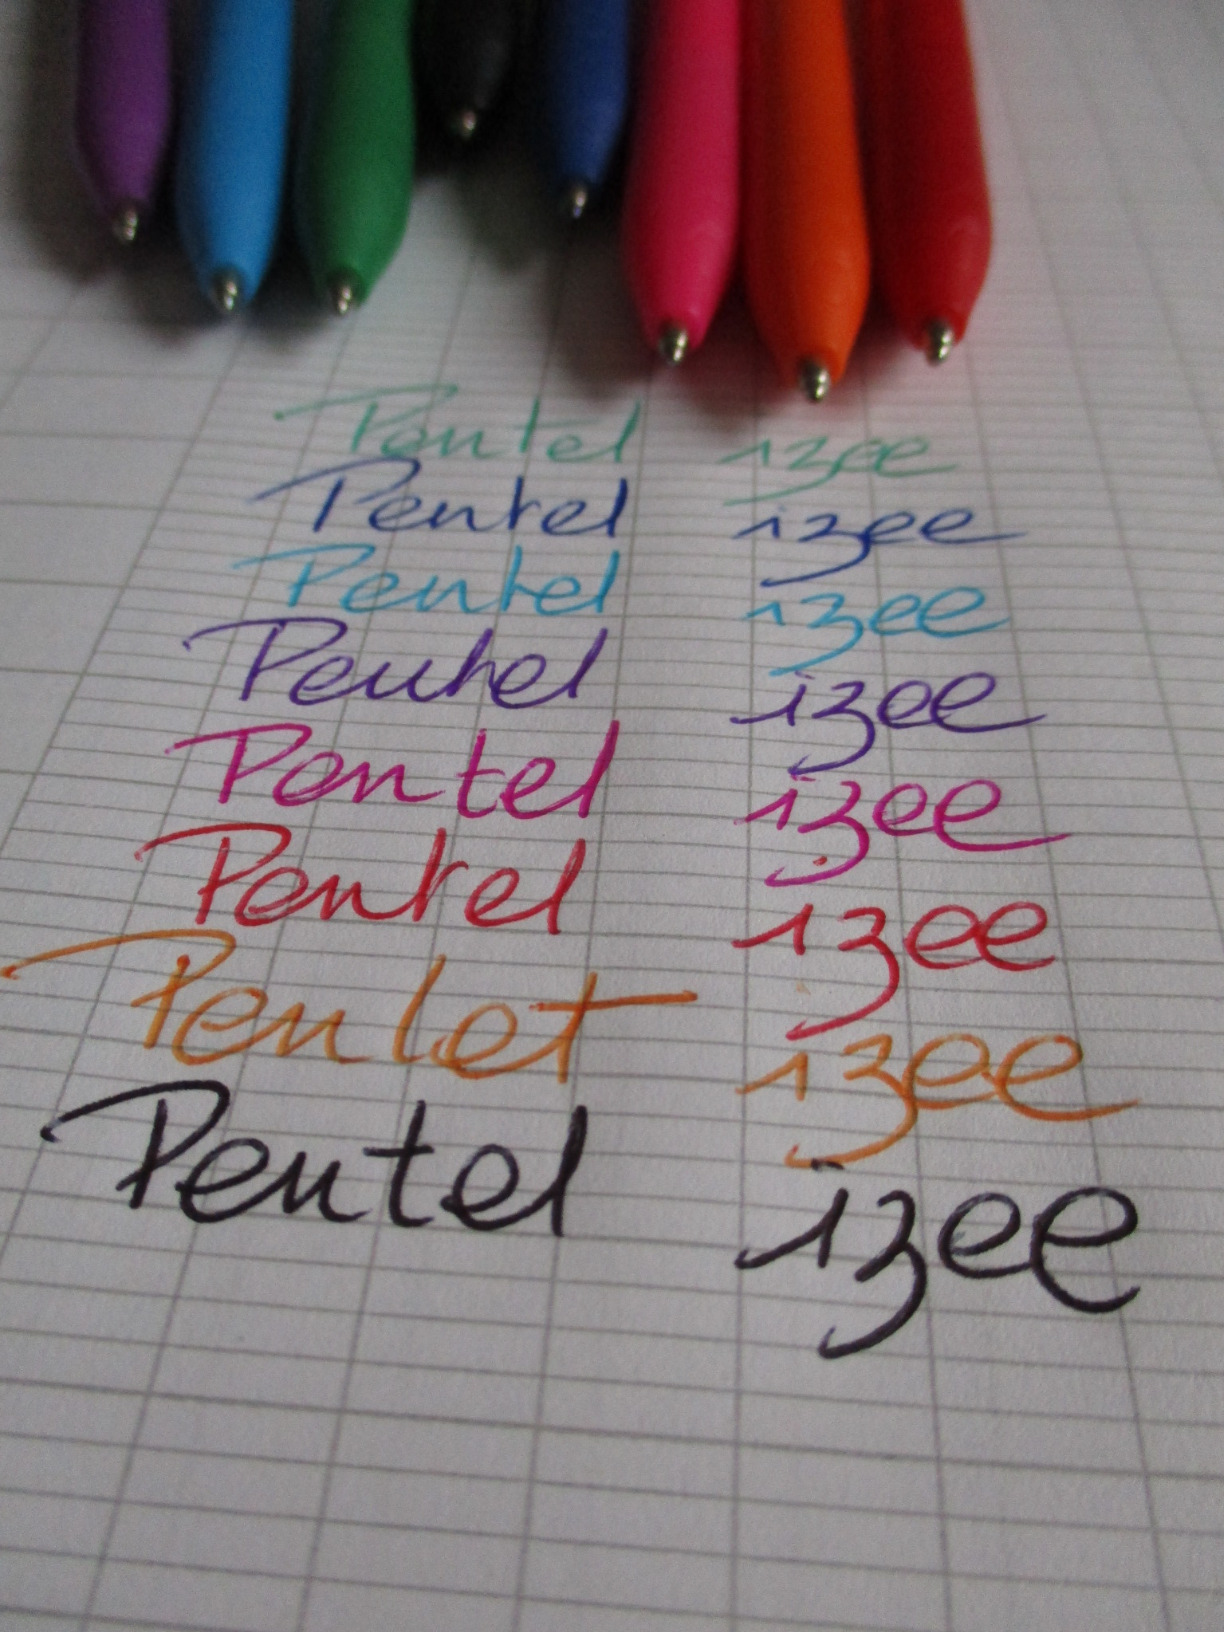 Pentel izee
Pentel izee
Pentel izee
Pentel izee
Pentel izee
Pentel izee
Penlet izee
Pentel izee